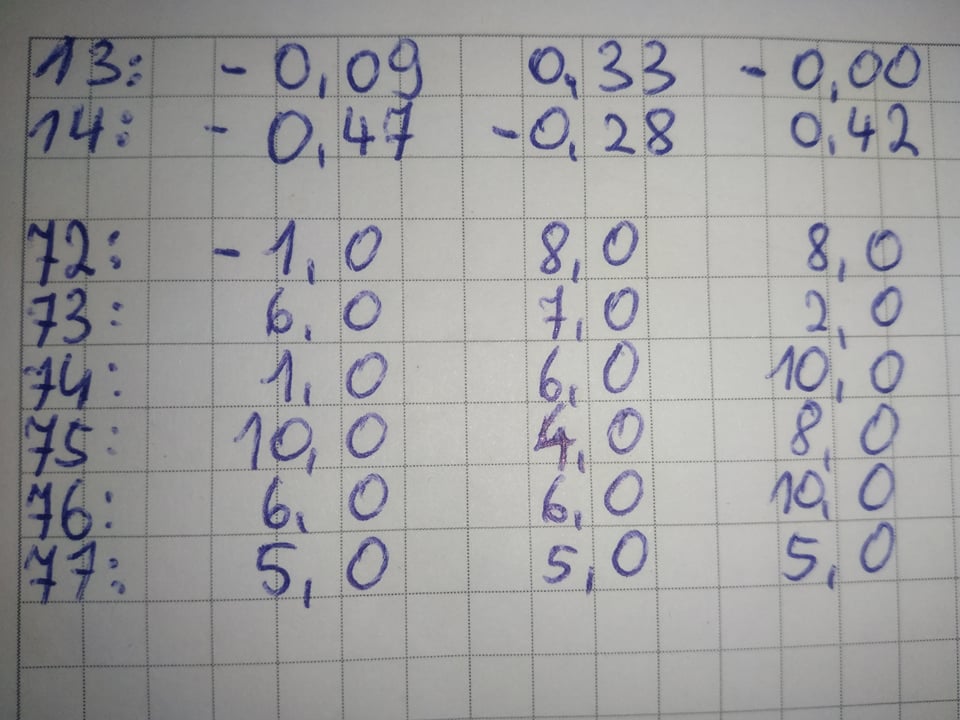 13: -0,09 0,33 -0,00
14: -0,47 -0,28 0,42
72: -1,0 8,0 8,0
73: 6,0 7,0 2,0
74: 1,0 6,0 10,0
75: 10,0 4,0 8,0
76: 6,0 6,0 10,0
77: 5,0 5,0 5,0